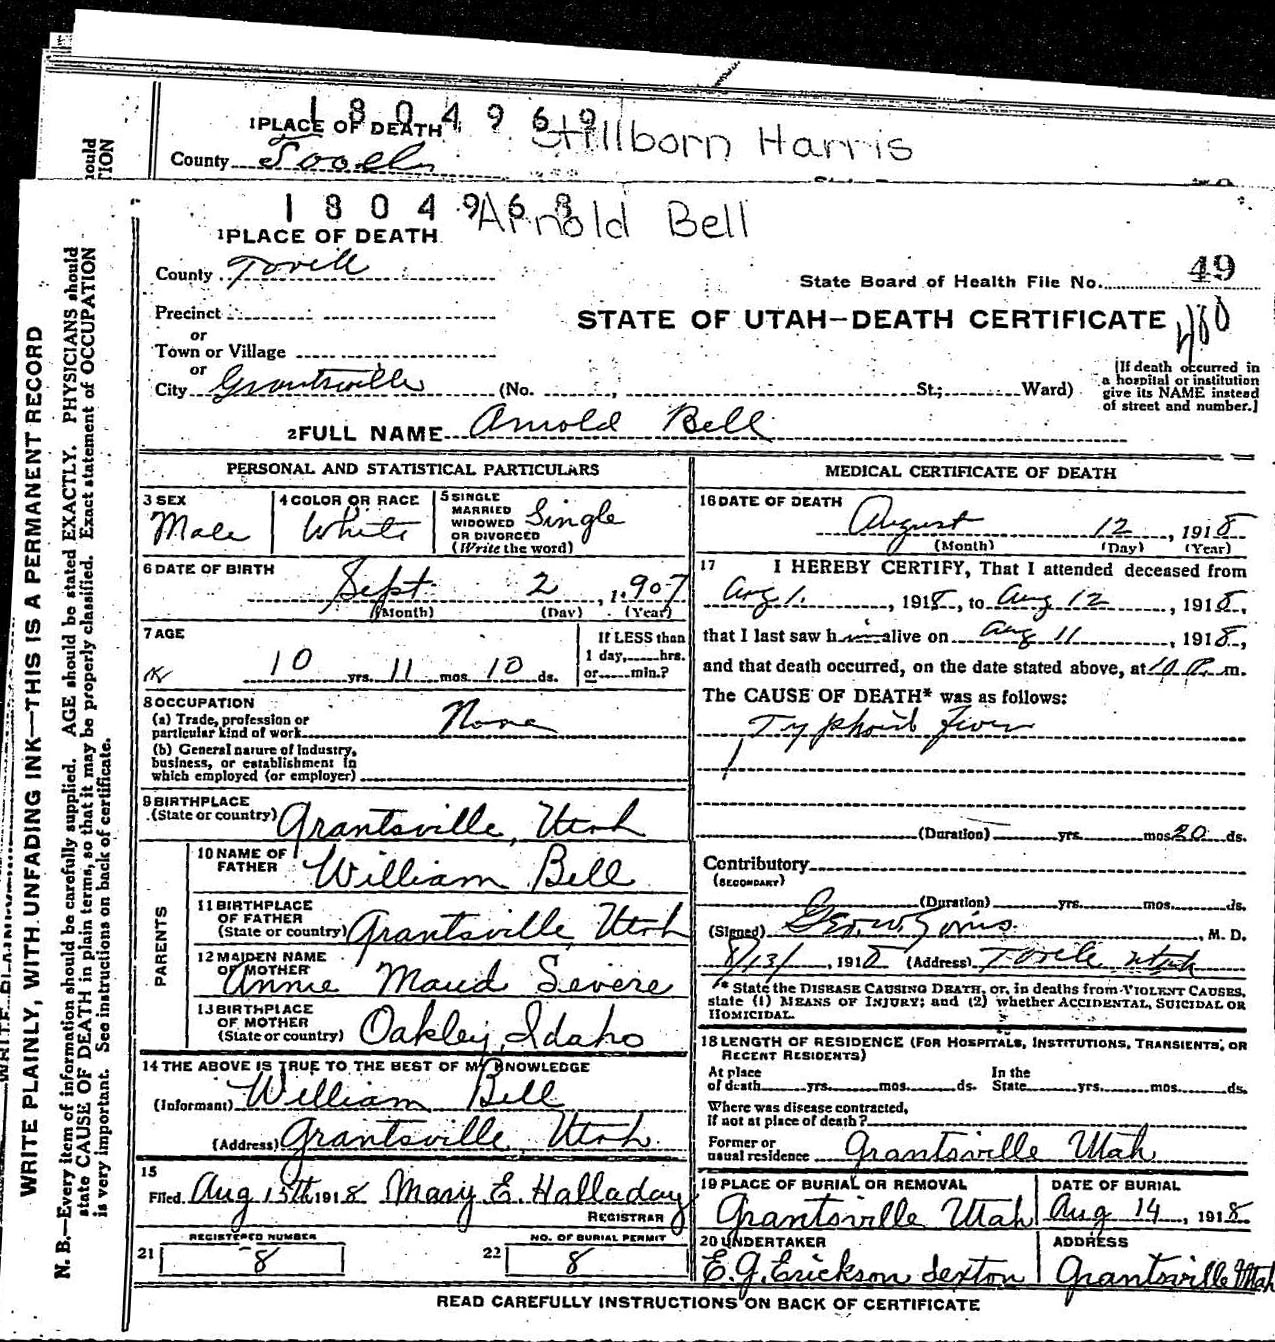 1804969 Stillborn Harris
1 PLACE OF DEATH
County Tooele
1804968 Arnold Bell
1 PLACE OF DEATH
County Tooele
State Board of Health File No. 49
Precinct
or
STATE OF UTAH—DEATH CERTIFICATE
Town or Village
or
City Grantsville (No. , St; Ward)
[If death occurred in
a hospital or institution
give its NAME instead
of street and number.]
2 FULL NAME Arnold Bell
PERSONAL AND STATISTICAL PARTICULARS
3 SEX
Male
4 COLOR OR RACE
White
5 SINGLE
MARRIED
WIDOWED
OR DIVORCED
(Write the word)
Single
6 DATE OF BIRTH
Sept 2, 1907
(Month) (Day) (Year)
7 AGE
10 yrs. 11 mos. 10 ds.
If LESS than
1 day, hrs.
or min.?
8 OCCUPATION
(a) Trade, profession or
particular kind of work None
(b) General nature of Industry,
business, or establishment in
which employed (or employer)
9 BIRTHPLACE
(State or country) Grantsville, Utah
PARENTS
10 NAME OF
FATHER William Bell
11 BIRTHPLACE
OF FATHER
(State or country) Grantsville, Utah
12 MAIDEN NAME
OF MOTHER Annie Maud Severe
13 BIRTHPLACE
OF MOTHER
(State or country) Oakley, Idaho
14 THE ABOVE IS TRUE TO THE BEST OF MY KNOWLEDGE
(Informant) William Bell
(Address) Grantsville, Utah.
15
Filed Aug 15th 1918 Mary E. Halladay
REGISTRAR
REGISTERED NUMBER
21 8
NO. OF BURIAL PERMIT
22 8
MEDICAL CERTIFICATE OF DEATH
16 DATE OF DEATH
August 12, 1918
(Month) (Day) (Year)
17 I HEREBY CERTIFY, That I attended deceased from
Aug 1, 1918, to Aug 12, 1918,
that I last saw him alive on Aug 11, 1918,
and that death occurred, on the date stated above, at m.
The CAUSE OF DEATH* was as follows:
Typhoid fever
(Duration) yrs. mos. 20 ds.
Contributory
(SECONDARY)
(Duration) yrs. mos. ds.
(Signed) Geo. W. , M. D.
8/13/, 1918 (Address) Tooele Utah
* State the DISEASE CAUSING DEATH, or, in deaths from VIOLENT CAUSES,
state (1) MEANS OF INJURY; and (2) whether ACCIDENTAL, SUICIDAL OR
HOMICIDAL.
18 LENGTH OF RESIDENCE (FOR HOSPITALS, INSTITUTIONS, TRANSIENTS, OR
RECENT RESIDENTS)
At place
of death yrs. mos. ds.
In the
State yrs. mos. ds.
Where was disease contracted,
If not at place of death?
Former or
usual residence Grantsville Utah
19 PLACE OF BURIAL OR REMOVAL
Grantsville Utah
DATE OF BURIAL
Aug 14, 1918
20 UNDERTAKER
E. G. Erickson Sexton
ADDRESS
Grantsville Utah
READ CAREFULLY INSTRUCTIONS ON BACK OF CERTIFICATE
WRITE PLAINLY, WITH UNFADING INK—THIS IS A PERMANENT RECORD
N. B.—Every item of information should be carefully supplied. AGE should be stated EXACTLY. PHYSICIANS should
state CAUSE OF DEATH in plain terms, so that it may be properly classified. Exact statement of OCCUPATION
is very important. See instructions on back of certificate.